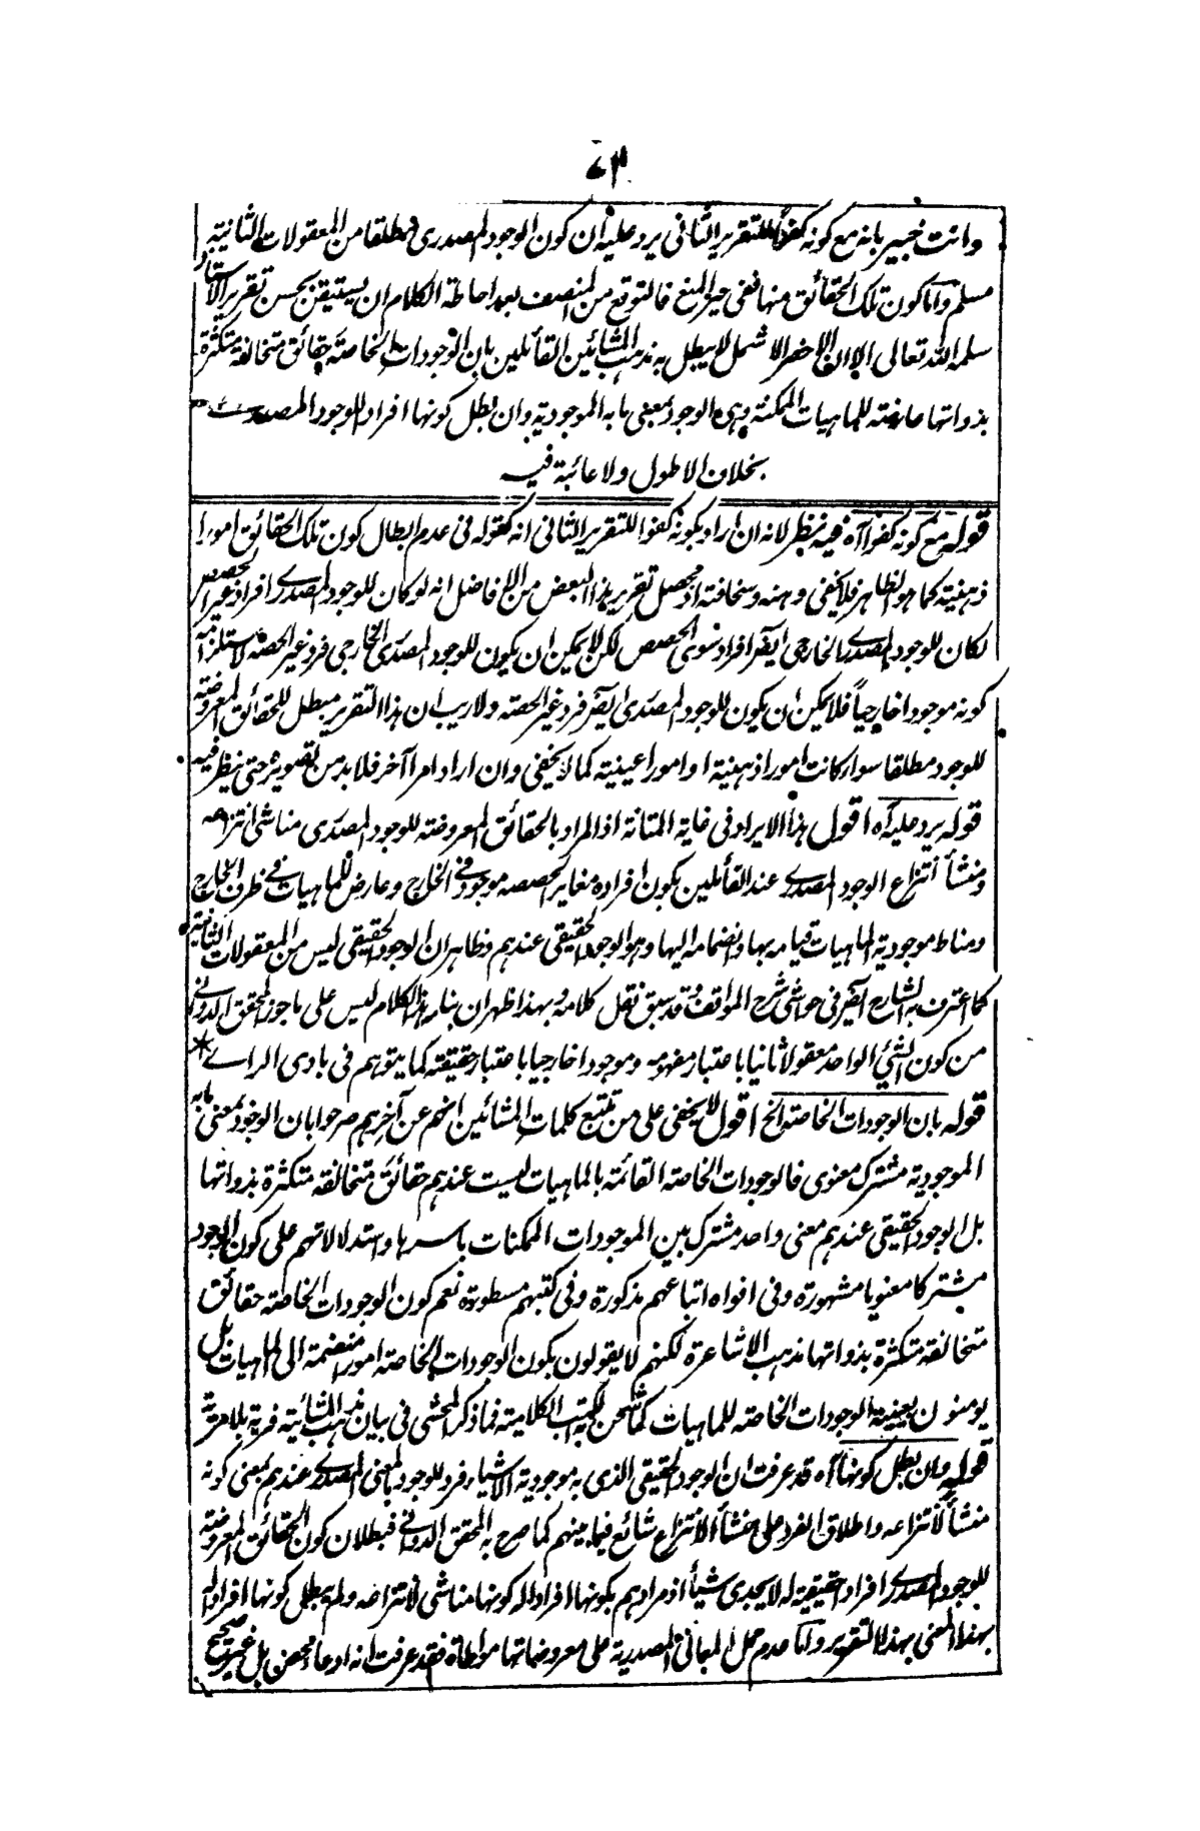 ٧٣
وانت خبير بانه مع كونه كفوا للتقرير الثانى يرد عليه أن كون الوجود المصدرى مطلقا من المعقولات الثانية
مسلم واما كون تلك الحقائق منها ففى حيز المنع فالتوقع من المنصف بعد احاطة الكلام ان يستيقن بحسن تقرير الاستاذ
سلمه الله تعالى الا ان الاخصر الاشمل لا يبطل به مذهب المشائين القائلين بان الوجودات الخاصة حقائق متخالفة متكثرة
بذواتها عارضة للماهيات الممكنة وهى الوجود بمعنى ما به الموجودية وان بطل كونها افراد الوجود المصدرى
بخلاف الاطول ولا عائبة فيه
قوله مع كونه كفوا آه فيه نظر لانه ان اراد بكونه كفوا للتقرير الثانى انه كقوله فى عدم ابطال كون تلك الحقائق امورا
ذهنية كما هو الظاهر فلا يخفى وهنه وسخافته اذ محصل تقرير هذا البعض من الافاضل انه لو كان للوجود المصدرى افراد غير الحصص
لكان للوجود المصدرى الخارجى ايضا افراد سوى الحصص لكن لا يمكن ان يكون للوجود المصدرى الخارجى فرد غير الحصة لاستلزامه
كونه موجودا خارجيا فلا يمكن ان يكون للوجود المصدرى ايضا فرد غير الحصة ولا ريب ان هذا التقرير مبطل للحقائق المعروضة
للوجود مطلقا سواء كانت امورا ذهنية او امورا عينية كما لا يخفى وان اراد امرا آخر فلا بد من تصويره حتى ينظر فيه
قوله يرد عليه آه اقول هذا الايراد فى غاية المتانة اذ المراد بالحقائق المعروضة للوجود المصدرى مناشى انتزاعه
ومنشأ انتزاع الوجود المصدرى عند القائلين بكون افراده مغاير الحصصه موجود فى الخارج وعارض للماهيات فى ظرف الخارج
ومناط موجودية الماهيات قيامه بها وانضمامه اليها وهو الوجود الحقيقى عندهم وظاهر ان الوجود الحقيقى ليس من المعقولات الثانية
كما اعترف به الشارح ايضا فى حواشى شرح المواقف وقد سبق نقل كلامه وبهذا ظهر ان بناء هذا الكلام ليس على ما جوزه المحقق الدوانى
من كون الشئ الواحد معقولا ثانيا باعتبار مفهومه وموجودا خارجيا باعتبار حقيقته كما يتوهم فى بادى الراى *
قوله بان الوجودات الخاصة الخ اقول لا يخفى على من تتبع كلمات المشائين انهم عن آخرهم صرحوا بان الوجود بمعنى ما به
الموجودية مشترك معنوى فالوجودات الخاصة القائمة بالماهيات ليست عندهم حقائق متخالفة متكثرة بذواتها
بل الوجود الحقيقى عندهم معنى واحد مشترك بين الموجودات الممكنات باسرها واستدلالاتهم على كون الوجود
مشتركا معنويا مشهورة وفى افواه اتباعهم مذكورة وفى كتبهم مسطورة نعم كون الوجودات الخاصة حقائق
متخالفة متكثرة بذواتها مذهب الاشاعرة لكنهم لا يقولون بكون الوجودات الخاصة امورا منضمة الى الماهيات بل
يومنون بعينية الوجودات الخاصة للماهيات كما شحن به الكتب الكلامية فما ذكر المحشى فى بيان مذهب المشائية فرية بلا مرية
قوله وان بطل كونها آه قد عرفت ان الوجود الحقيقى الذى به موجودية الاشياء فرد للوجود بالمعنى المصدرى عندهم بمعنى كونه
منشأ لانتزاعه واطلاق الفرد على منشأ الانتزاع شائع فيما بينهم كما صرح به المحقق الدوانى فبطلان كون الحقائق المعروضة
للوجود المصدرى افراد حقيقية له لا يجدى شيأ اذ مرادهم بكونها افرادا له كونها مناشى لانتزاعه ولم يبطل كونها افرادا له
بهذا المعنى بهذا التقرير واما عدم حمل المعانى المصدرية على معروضاتها مواطاة فقد عرفت انه ادعاء محض بل غير صحيح